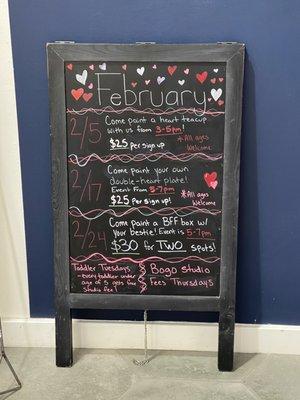 February
2/5 Come paint a heart teacup
with us from 3-5pm!
$25 Per sign up
*All ages
Welcome
2/17 Come paint your own
double-heart plate!
Event From 5-7pm
$25 Per sign up!
*All ages
Welcome
2/24 Come paint a BFF box w/
your bestie! Event is 5-7pm
$30 for TWO spots!
Toddler Tuesdays
-every toddler under
age of 5 gets free
studio fee!
Bogo studio
fees Thursdays